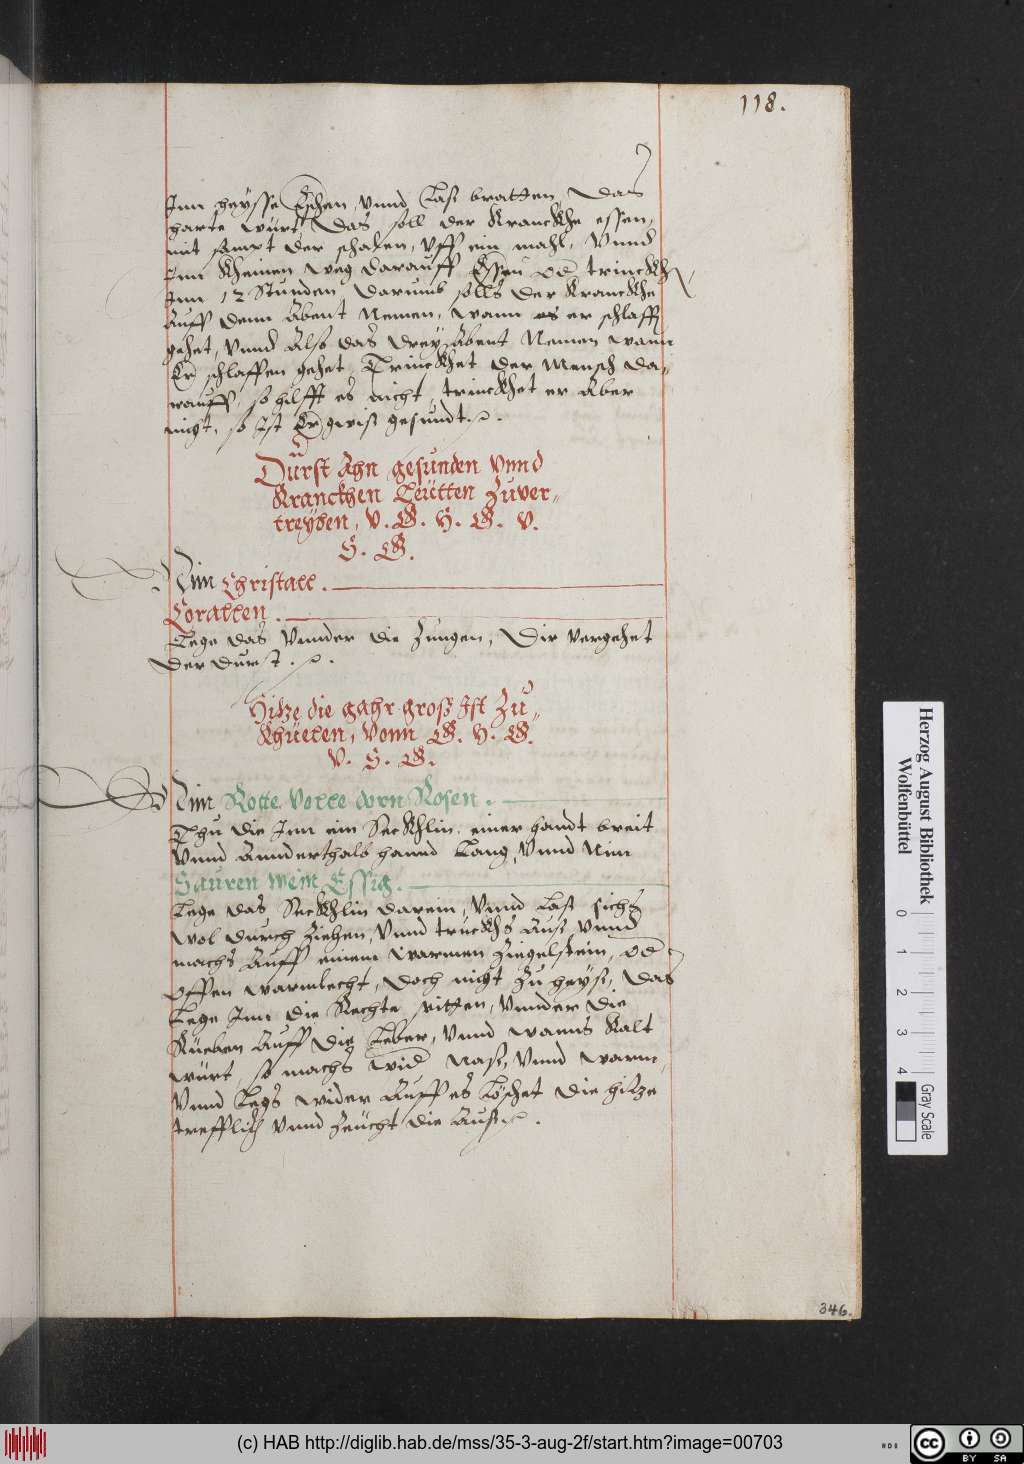 118.
Inn heysse Eschen, vnnd Lass bratten, das
harte wurt, Das soll der Kranckhe essen,
mit sampt der schalen, vff ein mahl, Vnnd
Inn kheinen weg darauff Essen od trinckh,
Inn 12 Stunden darumb solls der Kranckhe
Auff denn Abent Nemen, wann er schlaff
gehet, vnnd Also das drey Abent Nemen wann
Er schlaffen gehet, Trinckhet der Mensch da„
rauff, so hilfft es nicht, trinckhet er Aber
nicht, so Ist Er gwiß gesundt.
Durst Ahn gesunden vnnd
Kranckhen Leütten Zuver„
treyben, V. G. H. G. V.
S. G.
Nim Christall.
Corallen.
Lege das Vnnder die Zungen, Dir vergehet
der durst.
Hitze die gahr groß Ist Zu„
khüelen, Vonn G. H. G.
V. S. G.
Nim Rotte Volle dorn Rosen.
Thu die Inn ein Seckhlin, einer handt breit
Vnnd Annderthalb hannd Lang, Vnnd Nim
Sauren wein Essig.
Lege das Seckhlin darein, Vnnd Lass sichs
wol durch ziehen, Vnnd truckhs Auß Vnnd
machs Auff einem warmen Ziegelstein, od
offen warmlecht, Doch nicht Zu heyß, Das
Lege Inn die Rechte seitten, Vnnder die
Rüeben Auff die Leber, Vnnd wanns Kalt
würt, so machs wid Naß, Vnnd warm,
Vnnd Legs wider Auff es Löschet die hitze
trefflich Vnnd Zeücht die Auß.
346.
Herzog August Bibliothek
Wolfenbüttel
0 1 2 3 4
Gray Scale
(c) HAB http://diglib.hab.de/mss/35-3-aug-2f/start.htm?image=00703
cc BY SA